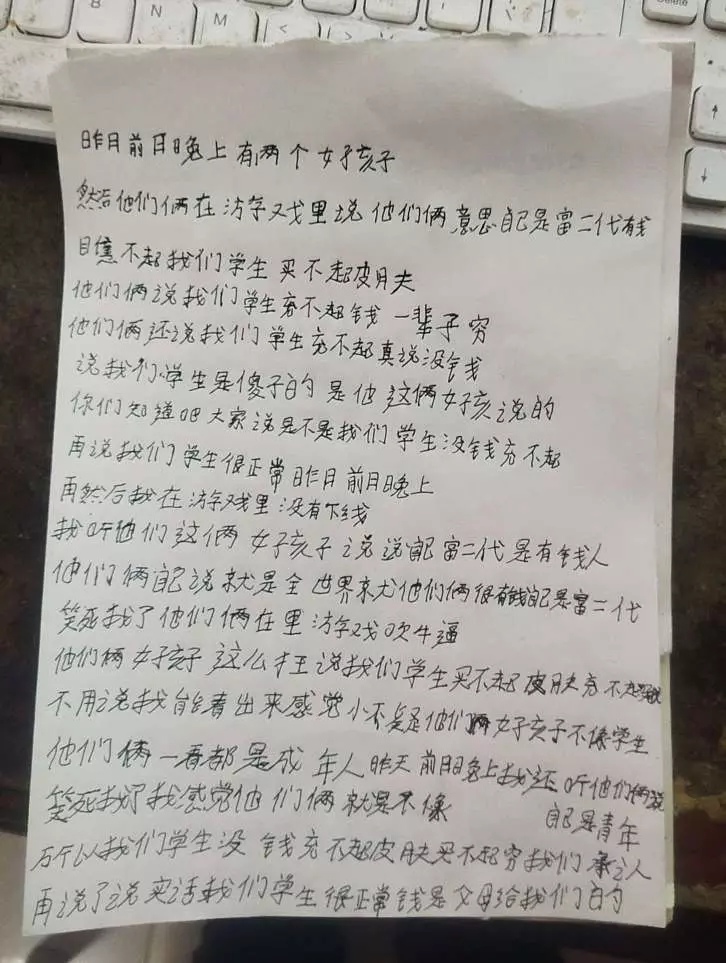 B N M < > Delete
昨月前日晚上有两个女孩子
然后他们俩在游字戏里说他们俩意思自己是富二代有钱
目焦不起我们学生买不起皮月夫
他们俩说我们学生充不起钱一辈子穷
他们俩还说我们学生充不起真说没钱
说我们学生是傻子的是他这俩女孩说的
你们知道吧大家说是不是我们学生没钱充不起
再说我们学生很正常昨月前月晚上
再然后我在游字戏里没有下线
我听他们这俩女孩子说说自己富二代是有钱人
他们俩自己说就是全世界就他们俩很有钱自己是富二代
笑死我了他们俩在里游字戏吹牛逼
他们俩女孩子这么狂说我们学生买不起皮肤充不起钱
不用说我能看出来感觉小不是他们俩女孩子不像学生
他们俩一看都是成年人昨天前日晚上我还听他们俩说
自己是青年
笑死我了我感觉他们俩就是不像
所以人我们学生没钱充不起皮肤买不起穷我们承认
再说了说实话我们学生很正常钱是父母给我们的